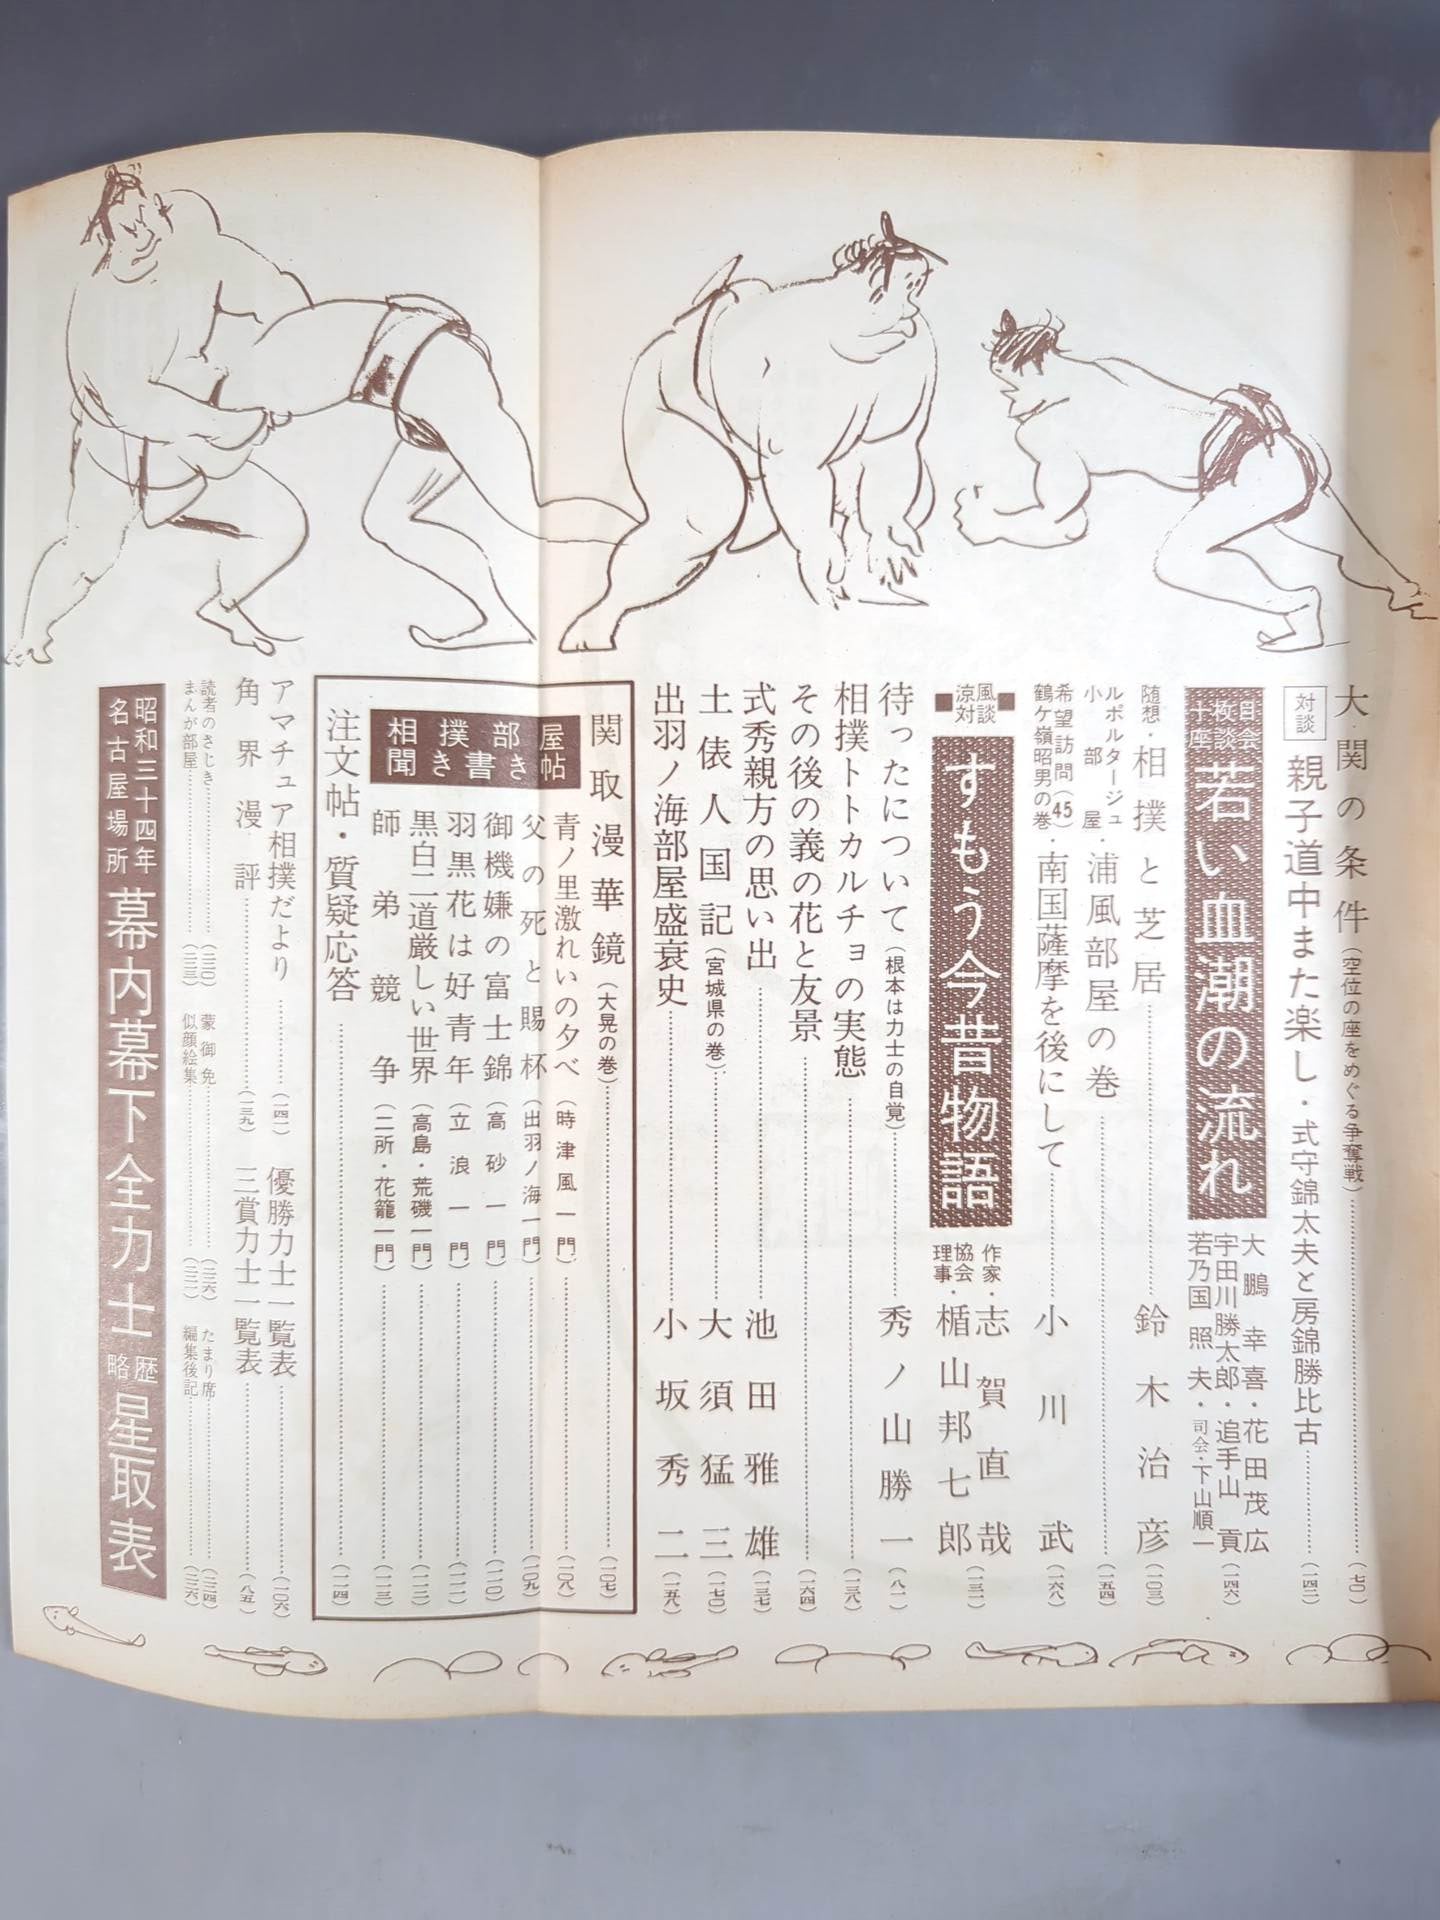 大関の条件（空位の座をめぐる争奪戦）……（七〇）
対談 親子道中また楽し・式守錦太夫と房錦勝比古……（一四二）
二十枚目座談会 若い血潮の流れ
大鵬幸喜・花田茂広
宇田川勝太郎・追手山貢
若乃国照夫・司会・下山順一（一四六）
随想・相撲と芝居……鈴木治彦（一〇三）
ルポルタージュ小部屋・浦風部屋の巻……（一五四）
希望訪問（45）鶴ケ嶺昭男の巻・南国薩摩を後にして……小川武（一六八）
涼風対談 すもう今昔物語
作家・志賀直哉
協会理事・楯山邦七郎（一三一）
待ったについて（根本は力士の自覚）……秀ノ山勝一（八一）
相撲トトカルチョの実態……（一三八）
その後の義の花と友景……（一六四）
式秀親方の思い出……池田雅雄（一三七）
土俵人国記（宮城県の巻）……大須猛三（一七〇）
出羽ノ海部屋盛衰史……小坂秀二（一五八）
関取漫華鏡（大晃の巻）……（一〇七）
相撲部屋聞き書き帖
青ノ里激れいの夕べ（時津風一門）……（一〇八）
父の死と賜杯（出羽ノ海一門）……（一〇九）
御機嫌の富士錦（高砂一門）……（一一〇）
羽黒花は好青年（立浪一門）……（一一一）
黒白二道厳しい世界（高島・荒磯一門）……（一一二）
師弟競争（二所・花籠一門）……（一一三）
注文帖・質疑応答……（一一四）
アマチュア相撲だより……（一四一）
優勝力士一覧表……（一〇六）
角界漫評……（一三九）
三賞力士一覧表……（八五）
読者のさじき……（二二〇）
蒙御免……（二二六）
たまり席……（二二四）
まんが部屋……（二二三）
似顔絵集……（二二一）
編集後記……（二三六）
昭和三十四年名古屋場所 幕内幕下全力士略歴星取表